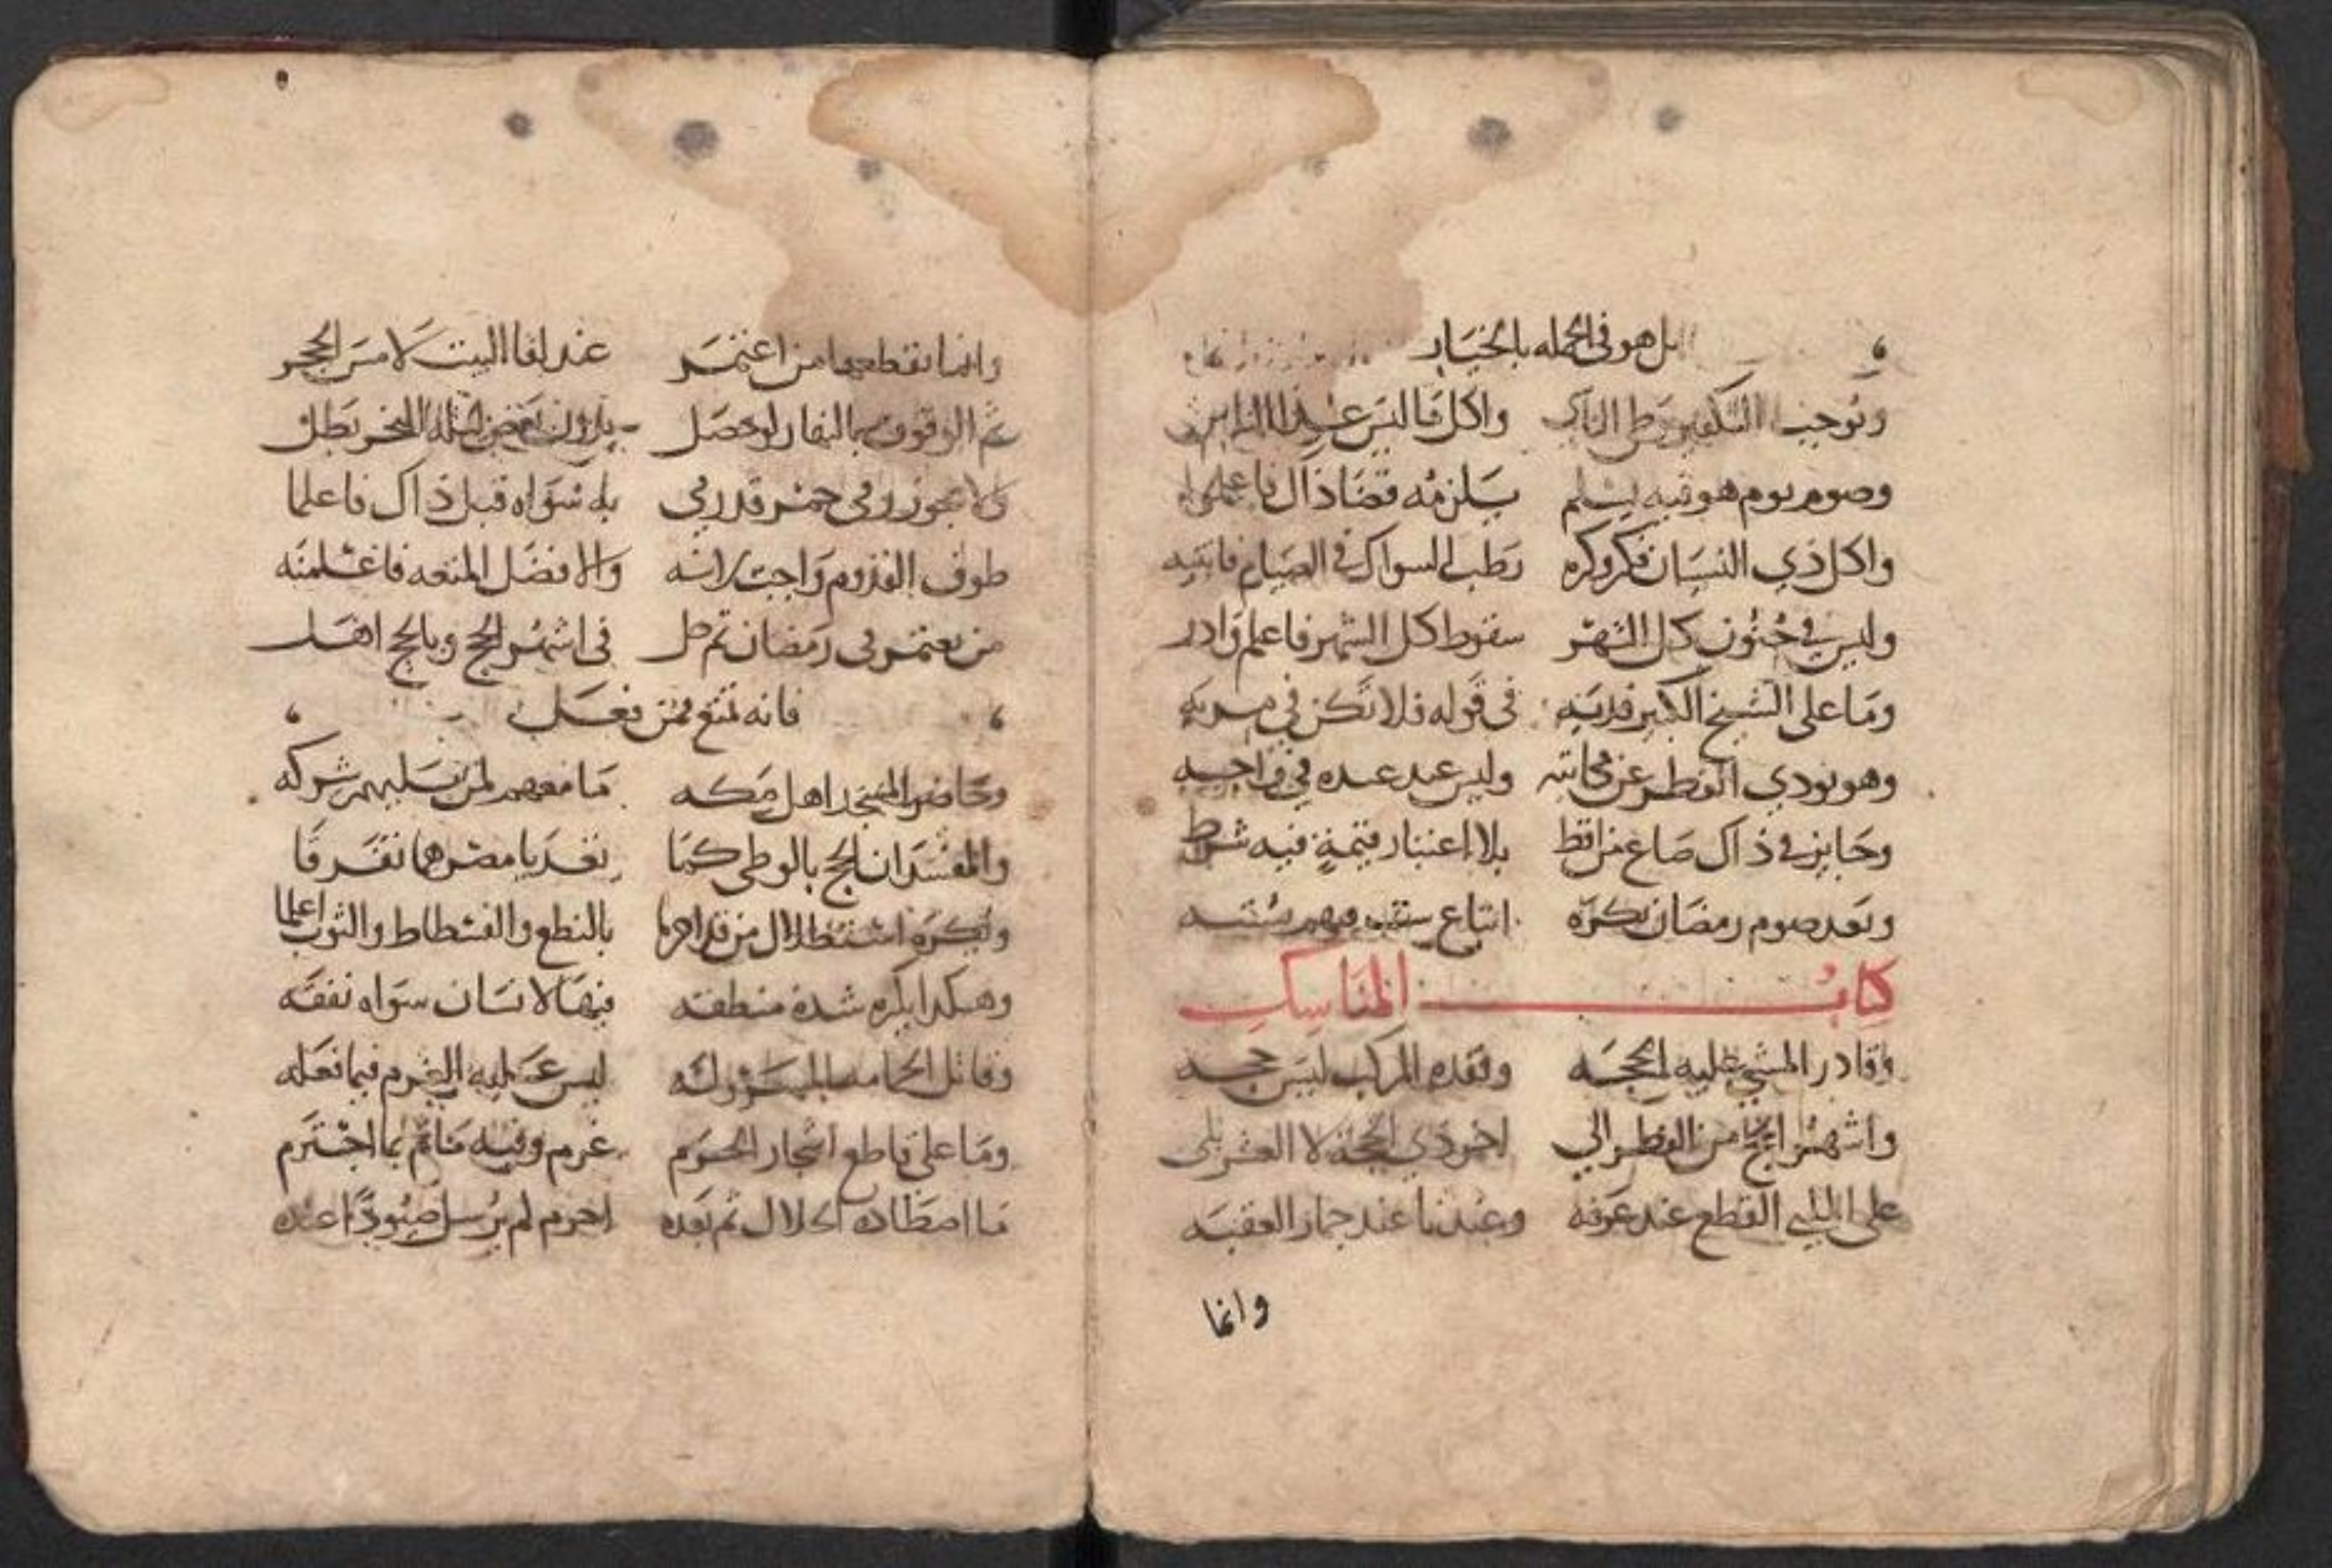 بل هو في الجمله بالخيار
ويوجب التكفير واكل فاليس عبدا
وصوم يوم هو فيه يسلم يلزمه قضا ذاك فاعلموا
واكل ذي النسيان فكر وكره رطب السواك في الصيام فانتبه
وليس في جنون كل الشهر سقوط كل الشهر فاعلم وادر
وما على الشيخ الكبير فديه في قوله فلا تكن في مريه
وهو يودي الفطر عن مكاتبه وليس عبد عبده في واجبه
وجايز في ذاك صاع من اقط بلا اعتبار قيمة فيه شرط
وبعد صوم رمضان يكره اتباع ست
كتاب المناسك
وقادر المشي عليه الحجه وفقده المركب ليس حجه
واشهر الحج من الفطر الي اخر ذي الحجة لا العشر بلى
على الملبي القطع عند عرفه وعندنا عند جمار العقبه
وانما
وانما يقطعها من اعتمر عند لقا البيت لا مس الحجر
ثم الوقوف بالنهار لو حصل بدون بعض ليلة النحر بطل
ولا يجوز رمي جمر قد رمي به سواه قبل ذاك فاعلما
طوف القدوم واجب لانه والافضل المتعه فاعلمنه
من يعتمر في رمضان ثم حل في اشهر الحج وبالحج اهل
فانه تمتع ممن فعل
وحاضروا المسجد اهل مكه ما معهم لمن يليهم شركه
والمفسدان الحج بالوطي كما بعد يا مصرها تفرقا
ويكره استظلال من قد احرما بالنطع والفسطاط والثوب اعلما
وهكذا يكره شدة منطقه فيها لانسان سواه نفقه
وقاتل الحمامة المسروله ليس عليه الغرم فيما فعله
وما على قاطع اشجار الحرم غرم وفيه ماثم بما اجترم
ما اصطاده الحلال ثم بعده احرم لم يرسل صيودا عنده